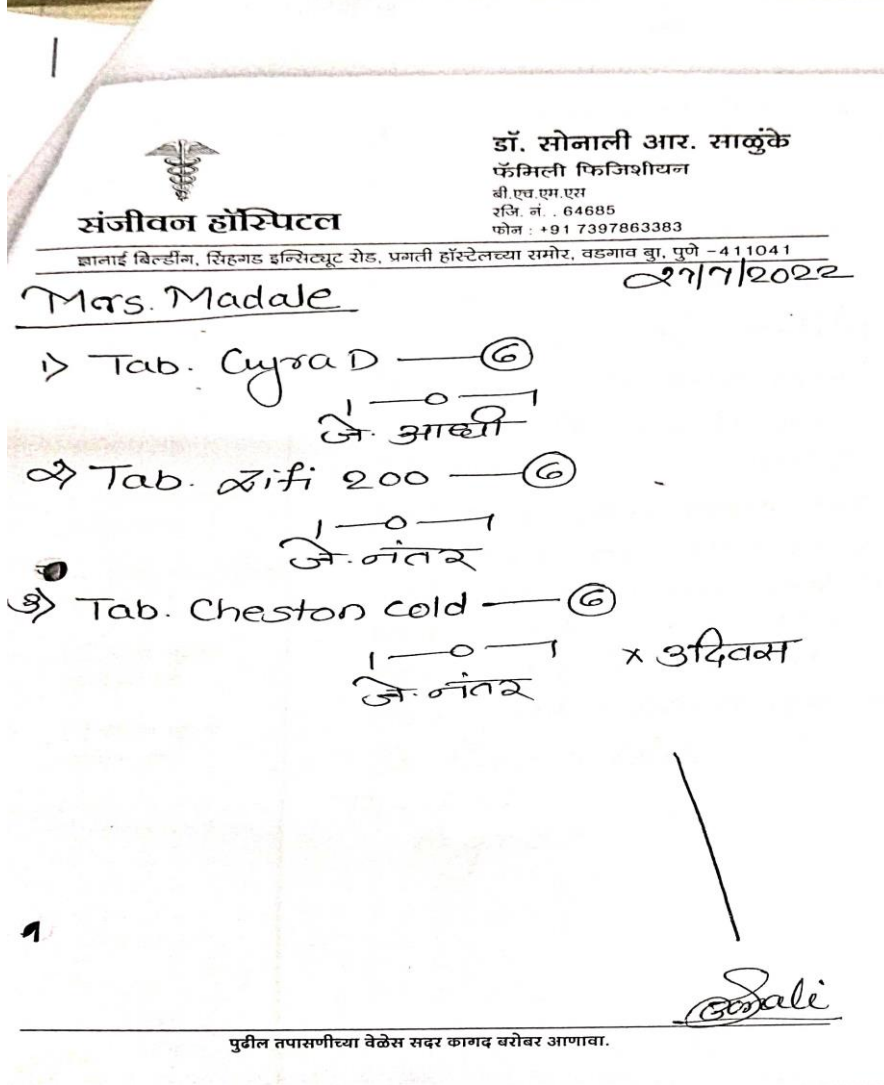 डॉ. सोनाली आर. साळुंके
फॅमिली फिजिशीयन
बी.एच.एम.एस
रजि. नं. . 64685
फोन : +91 7397863383
संजीवन हॉस्पिटल
ज्ञानाई बिल्डींग, सिंहगड इन्सिट्यूट रोड, प्रगती हॉस्टेलच्या समोर, वडगाव बु।, पुणे -411041
२१/१/2022
Mrs. Madale
1) Tab. Cyra D — 6
1 — 0 — 1
जे. आधी
२) Tab. Zifi 200 — 6
1 — 0 — 1
जे. नंतर
३) Tab. Cheston cold — 6
1 — 0 — 1 x 3 दिवस
जे. नंतर
पुढील तपासणीच्या वेळेस सदर कागद बरोबर आणावा.